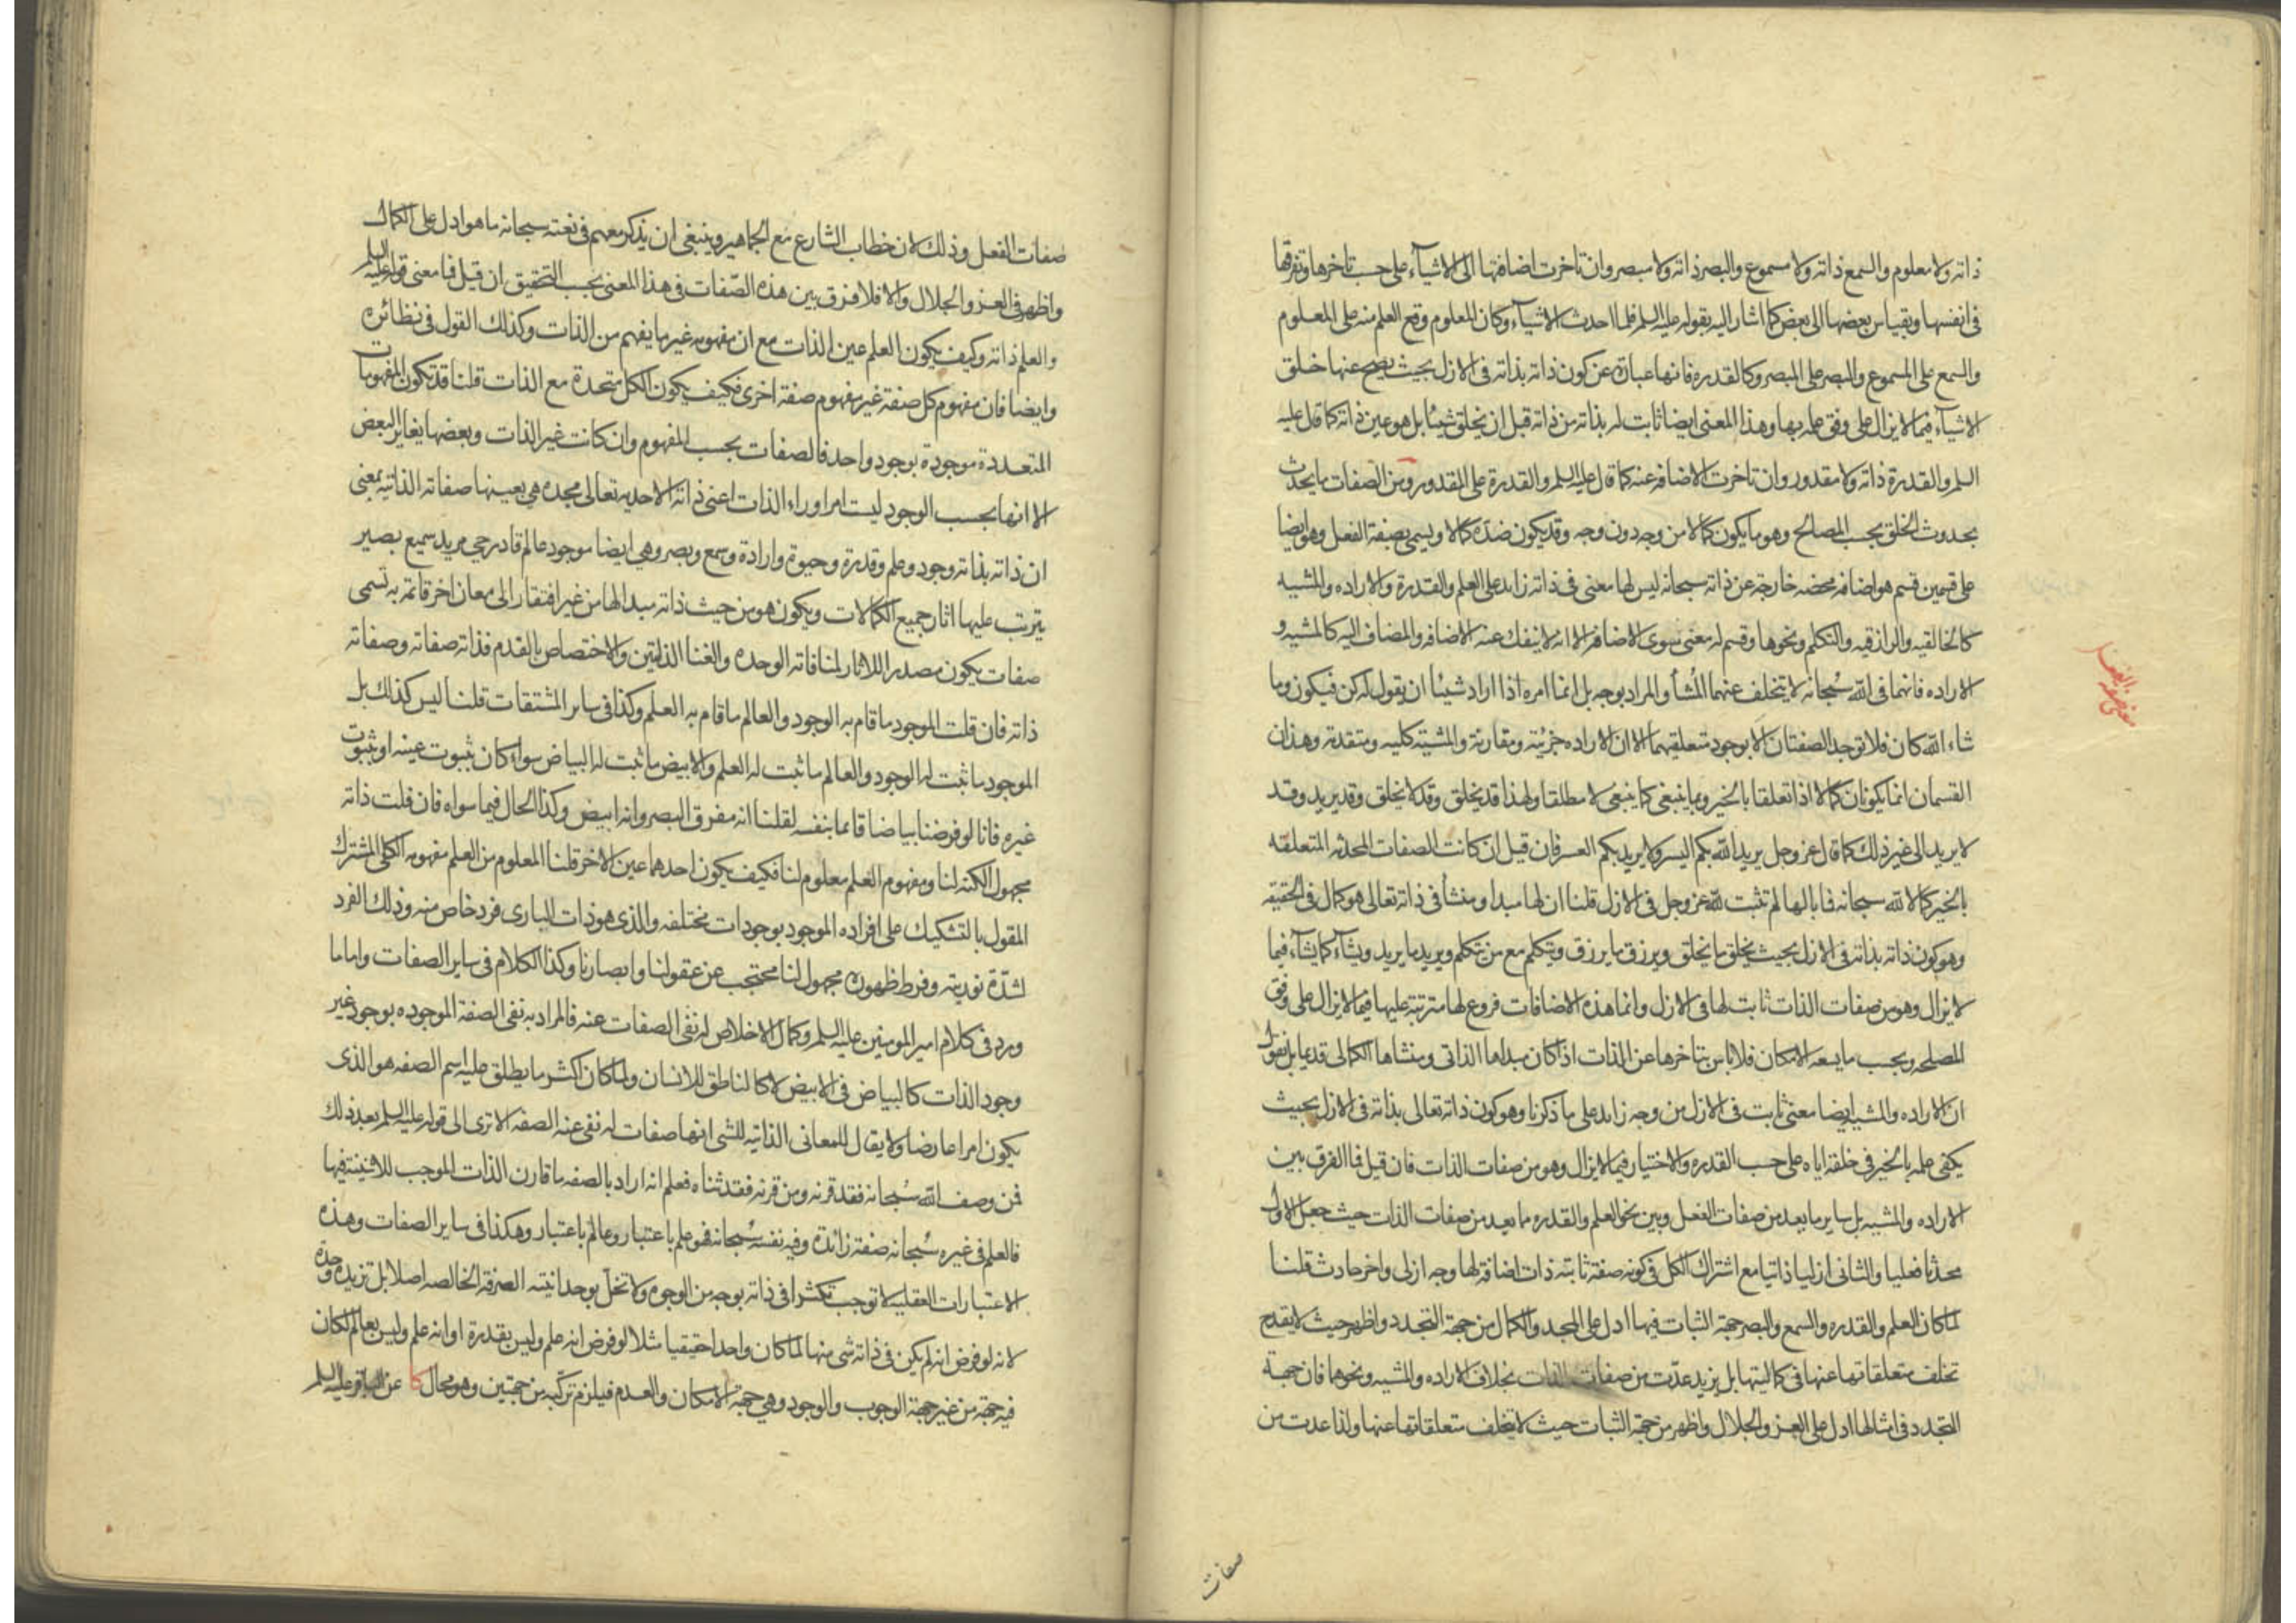 ذاته ولا معلوم والسمع ذاته ولا مسموع والبصر ذاته ولا مبصر وان تاخرت اضافتها الى الاشياء على حسب تاخرها وتفرقها
فى انفسها وبقياس بعضها الى بعض كما اشار اليه بقوله عليه السلم فلما احدث الاشياء وكان المعلوم وقع العلم منه على المعلوم
والسمع على المسموع والبصر على المبصر وكالقدره فانها عبارة عن كون ذاته بذاته فى الازل بحيث يصح عنها خلق
الاشياء فيما لا يزال على وفق علمه بها وهذا المعنى ايضا ثابت له بذاته من ذاته قبل ان يخلق شيئا بل هو عين ذاته كما قال عليه
السلم والقدرة ذاته ولا مقدور وان تاخرت الاضافه عنه كما قال عليه السلم والقدرة على المقدور ومن الصفات ما يحدث
بحدوث الخلق بحسب المصالح وهو ما يكون كمالا من وجه دون وجه وقد يكون ضده كمالا ويسمى بصفة الفعل وهو ايضا
على قسمين قسم هو اضافه محضه خارجه عن ذاته سبحانه ليس لها معنى فى ذاته زايد على العلم والقدرة والاراده والمشيه
كالخالقيه والرازقيه والتكلم ونحوها وقسم له معنى سوى الاضافه الا انه لا ينفك عنه الاضافه والمضاف اليه كالمشيه و
الاراده فانهما فى الله سبحانه لا يتخلف عنهما المُشأ والمراد بوجه بل انما امره اذا اراد شيئا ان يقول له كن فيكون وما
شاء الله كان فلا توجد الصفتان الا بوجود متعلقيهما الا ان الاراده جزئية ومقارنة والمشيئه كليه ومتقدمة وهذان
القسمان انما يكونان كمالا اذا تعلقا بالخير وبما ينبغى كما ينبغى لا مطلقا ولهذا قد يخلق وقد لا يخلق وقد يريد وقد
لا يريد الى غير ذلك كما قال عز وجل يريد الله بكم اليسر ولا يريد بكم العسر فان قيل ان كانت الصفات المحدثه المتعلقه
بالخير كمالا لله سبحانه فما بالها لم تثبت لله عز وجل فى الازل قلنا ان لها مبدا ومنشأ فى ذاته تعالى هو كمال فى الحقيقه
وهو كون ذاته بذاته فى الازل بحيث يخلق ما يخلق ويرزق ما يرزق ويتكلم مع من يتكلم ويريد ما يريد ويشاء كما يشاء فيما
لا يزال وهو من صفات الذات ثابت لها فى الازل وانما هذه الاضافات فروع لها مترتبة عليها فيما لا يزال على وفق
المصلحه وبحسب ما يسعه الامكان فلا باس بتاخرها عن الذات اذا كان مبداها الذاتى ومنشاها الكمالى قديما بل نقول
ان الاراده والمشيه ايضا معنى ثابت فى الازل من وجه زايد على ما ذكرنا وهو كون ذاته تعالى بذاته فى الازل بحيث
يكفى علمه بالخير فى خلقه اياه على حسب القدره والاختيار فيما لا يزال وهو من صفات الذات فان قيل فما الفرق بين
الاراده والمشيه بل ساير ما يعد من صفات الفعل وبين نحو العلم والقدره مما يعد من صفات الذات حيث جعل الاول
محدثا فعليا والثانى ازليا ذاتيا مع اشتراك الكل فى كونه صفة ثابته ذات اضافة لها وجه ازلى واخر حادث قلنا
لما كان العلم والقدره والسمع والبصر جهة الثبات فيها ادل على المجد والكمال من جهة التجدد واظهر حيث لا يقدح
تخلف متعلقاتها عنها فى كماليتها بل يزيد عدّت من صفات الذات بخلاف الاراده والمشيه ونحوها فان جهة
التجدد فى امثالها ادل على العز والجلال واظهر من جهة الثبات حيث لا يتخلف متعلقاتها عنها ولذا عدت من
صفات
معنى صفة الفعل
صفات الفعل وذلك لان خطاب الشارع مع الجماهير وينبغى ان يذكر معهم فى نعته سبحانه ما هو ادل على الكمال
واظهر فى العز والجلال والا فلا فرق بين هذه الصّفات فى هذا المعنى بحسب التحقيق ان قيل فما معنى قوله عليه السلم
والعلم ذاته وكيف يكون العلم عين الذات مع ان مفهومه غير ما يفهم من الذات وكذلك القول فى نظائره
وايضا فان مفهوم كل صفة غير مفهوم صفة اخرى فكيف يكون الكل متحدة مع الذات قلنا قد تكون المفهومات
المتعددة موجودة بوجود واحد فالصفات بحسب المفهوم وان كانت غير الذات وبعضها يغاير البعض
الا انها بحسب الوجود ليست امرا وراء الذات اعنى ذاته الاحديه تعالى مجده هى بعينها صفاته الذاتيه بمعنى
ان ذاته بذاته وجود وعلم وقدرة وحيوة وارادة وسمع وبصر وهى ايضا موجود عالم قادر حى مريد سميع بصير
يترتب عليها اثار جميع الكمالات ويكون هو من حيث ذاته مبدا لها من غير افتقار الى معان اخر قائمة به تسمى
صفات يكون مصدرا للاثار لمنافاته الوحده والغنا الذاتيين والاختصاص بالقدم فذاته صفاته وصفاته
ذاته فان قلت الموجود ما قام به الوجود والعالم ما قام به العلم وكذا فى ساير المشتقات قلنا ليس كذلك بل
الموجود ما ثبت له الوجود والعالم ما ثبت له العلم والابيض ما ثبت له البياض سواء كان بثبوت عينه او بثبوت
غيره فانا لو فرضنا بياضا قايما بنفسه لقلنا انه مفرق البصر وانه ابيض وكذا الحال فيما سواه فان قلت ذاته
مجهول الكنه لنا ومفهوم العلم معلوم لنا فكيف يكون احدهما عين الاخر قلنا المعلوم من العلم مفهومه الكلى المشترك
المقول بالتشكيك على افراده الموجود بوجودات مختلفه والذى هو ذات البارى فرد خاص منه وذلك الفرد
لشدّة نوريته وفرط ظهوره مجهول لنا محتجب عن عقولنا وابصارنا وكذا الكلام فى ساير الصفات واما ما
ورد فى كلام امير المومنين عليه السلم وكمال الاخلاص له نفى الصفات عنه فالمراد به نفى الصفة الموجوده بوجود غير
وجود الذات كالبياض فى الابيض لا كالناطق للانسان ولما كان اكثر ما يطلق عليه اسم الصفه هو الذى
يكون امرا عارضا ولا يقال للمعانى الذاتيه للشى انها صفات له نفى عنه الصفه الا ترى الى قوله عليه السلم بعد ذلك
فمن وصف الله سبحانه فقد قرنه ومن قرنه فقد ثناه فعلم انه اراد بالصفه ما قارن الذات الموجب للاثنينيه فيها
فالعلم فى غيره سبحانه صفة زائدة وفيه نفسه سبحانه فهو علم باعتبار وعالم باعتبار وهكذا فى ساير الصفات وهذه
الاعتبارات العقليه لا توجب تكثرا فى ذاته بوجه من الوجوه ولا تخلّ بوحدانيته الصرفة الخالصه اصلا بل تزيده وحدة
لانه لو فرض انه لم يكن فى ذاته شى منها لما كان واحدا حقيقيا مثلا لو فرض انه علم وليس بقدرة او انه علم وليس بعالم لكان
فيه جهة من غير جهة الوجوب والوجود وهى جهة الامكان والعدم فيلزم تركبه من جهتين وهو محال كا عن الباقر عليه السلم